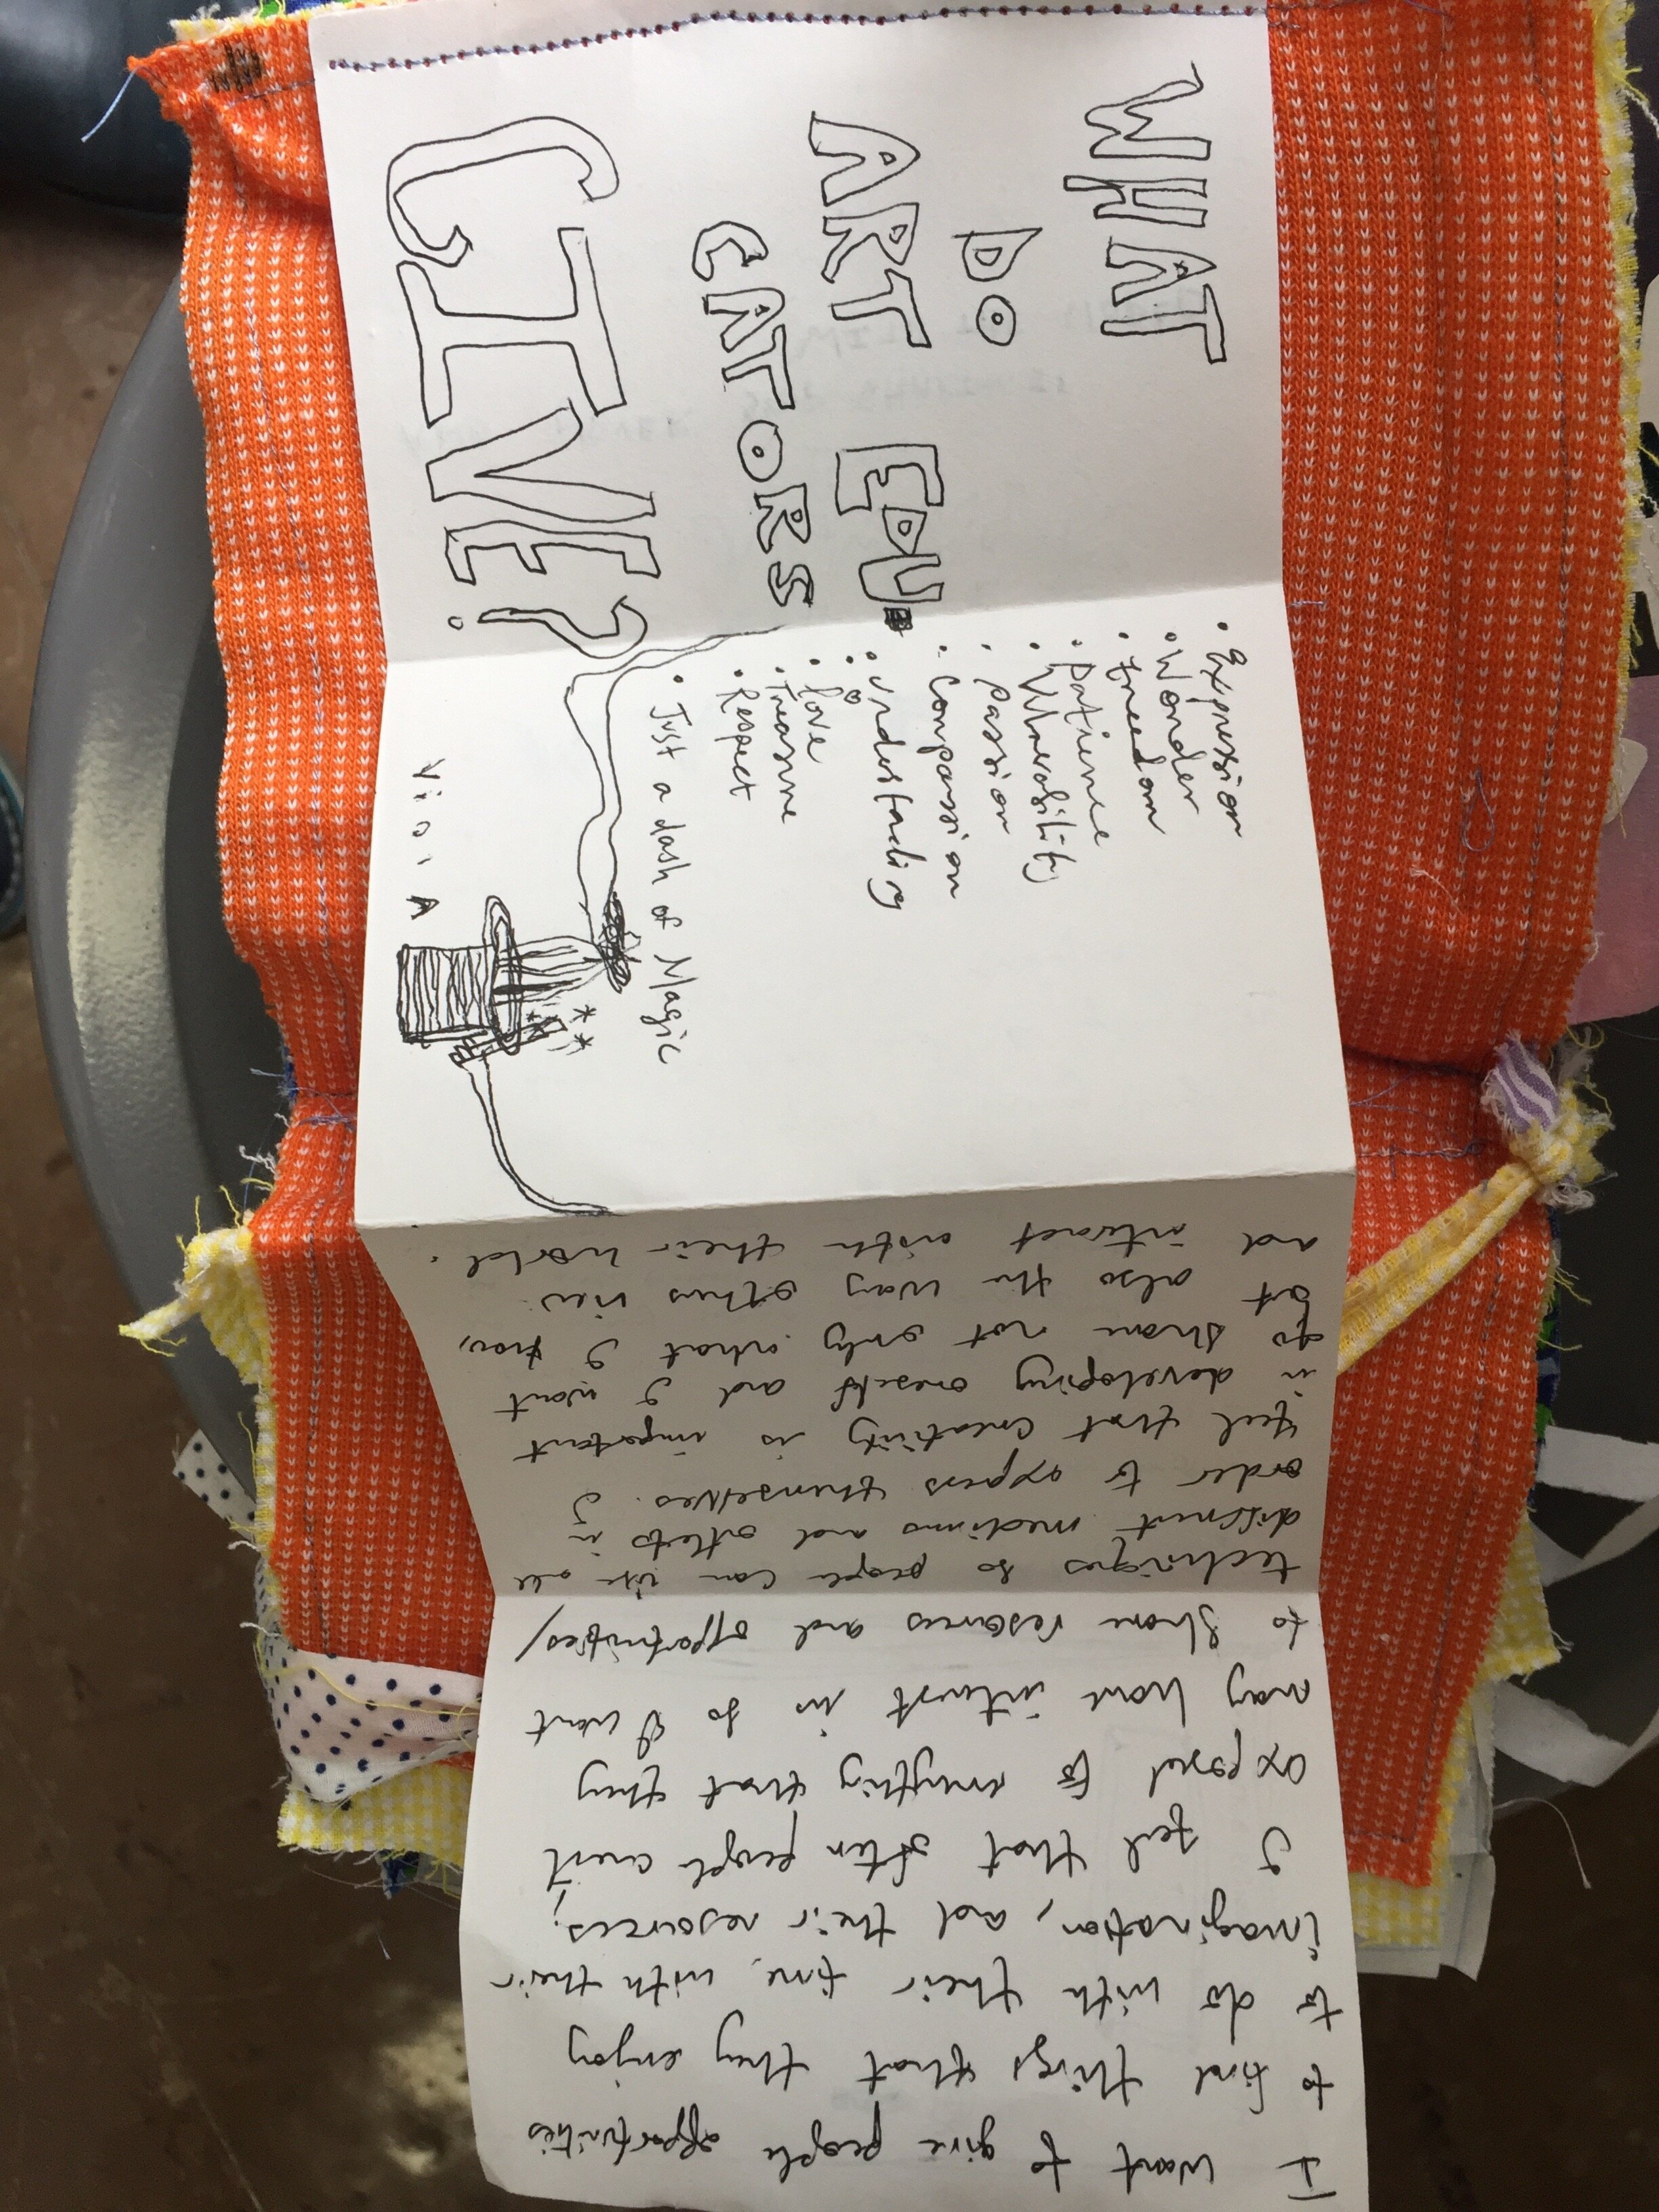 WHAT
DO
ART EDU
CATORS
GIVE?
• Expression
• Wonder
• Freedom
• Patience
• Vulnerability
• Passion
• Compassion
• Understanding
• Love
• Treasure
• Respect
• Just a dash of Magic
I want to give people opportunities
to find things that they enjoy
to do with their time, with their
imagination, and their resources.
I feel that often people arent
exposed to everything that they
may have interest in so I want
to share resources and opportunities,
techniques so people can use all
different mediums and outlets in
order to express themselves. I
feel that creativity is important
in developing oneself and I want
to share not only what I know,
but also the way others view
and interact with their world.